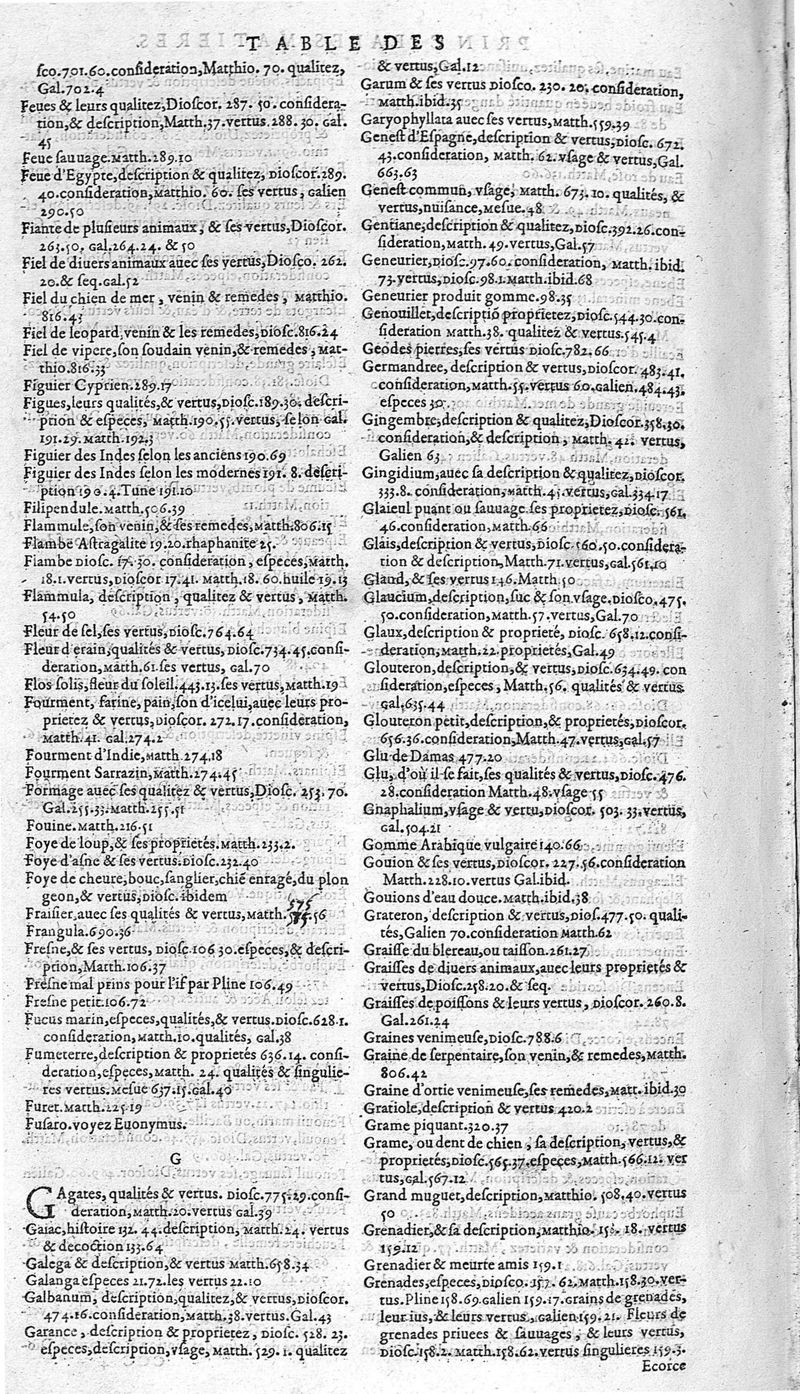 TABLE DES
ſco.701.60.conſideration,Matthio. 70. qualitez,
Gal.702.4
Feues & leurs qualitez,Dioſcor. 287. 50. conſidera-
tion,& deſcription,Matth.37.vertus. 288. 30. Gal.
45
Feue ſauuage.Matth.289.10
Feue d'Egypte,deſcription & qualitez, Dioſcor.289.
40.conſideration,Matthio. 60. ſes vertus, Galien
290.50
Fiante de pluſieurs animaux, & ſes vertus,Dioſcor.
263.50. Gal.264.24. & 50
Fiel de diuers animaux auec ſes vertus,Dioſco. 262.
20.& ſeq.Gal.52
Fiel du chien de mer, venin & remedes, Matthio.
816.43
Fiel de leopard,venin & les remedes,Dioſc.816.24
Fiel de vipere,ſon ſoudain venin,& remedes, Mat-
thio.816.33
Figuier Cyprien.289.17
Figues,leurs qualités,& vertus,Dioſc.189.30. deſcri-
ption & eſpeces, Matth.190.55.vertus, ſelon Gal.
191.29.Matth.192.3
Figuier des Indes ſelon les anciens 190.69
Figuier des Indes ſelon les modernes 191. 8. deſcri-
ption 190.4.Tune 191.10
Filipendule.Matth.506.39
Flammule,ſon venin,& ſes remedes,Matth.806.15
Flambe Aſtragalite 19.20.rhaphanite 25.
Flambe Dioſc. 17.30. conſideration, eſpeces,Matth.
18.1.vertus,Dioſcor 17.41. Matth.18. 60.huile 19.13
Flammula, deſcription, qualitez & vertus, Matth.
54.50
Fleur de ſel,ſes vertus,Dioſc.764.64
Fleur d'erain,qualités & vertus,Dioſc.734.45.conſi-
deration,Matth.61.ſes vertus, Gal.70
Flos ſolis,fleur du ſoleil.443.13.ſes vertus,Matth.19
Fourment, farine, pain, ſon d'icelui,auec leurs pro-
prietez & vertus,Dioſcor. 272.17.conſideration,
Matth.41. Gal.274.2
Fourment d'Indie,Matth 274.18
Fourment Sarrazin,Matth.274.45
Formage auec ſes qualitez & vertus,Dioſc. 253. 70.
Gal.255.33.Matth.255.51
Fouine.Matth.216.51
Foye de loup,& ſes proprietés.Matth.233.2.
Foye d'aſne & ſes vertus.Dioſc.232.40
Foye de cheure,bouc,ſanglier,chié enragé,du plon
geon,& vertus,Dioſc.ibidem
Fraiſier auec ſes qualités & vertus,Matth. 575 .56
Frangula.690.36
Freſne,& ſes vertus, Dioſc.106 30.eſpeces,& deſcri-
ption,Matth.106.37
Freſne mal prins pour l'if par Pline 106.49
Freſne petit.106.72
Fucus marin,eſpeces,qualités,& vertus.Dioſc.628.1.
conſideration,Matth.10.qualités, Gal.38
Fumeterre,deſcription & proprietés 636.14. conſi-
deration,eſpeces,Matth. 24. qualités & ſingulie-
res vertus.Meſue 637.15.Gal.40
Furet.Matth.225.19
Fuſaro.voyez Euonymus.
G
GAgates, qualités & vertus. Dioſc.775.29.conſi-
deration,Matth.20.vertus Gal.39
Gaiac,hiſtoire 132. 44.deſcription, Matth.24. vertus
& decoction 133.64
Galega & deſcription,& vertus Matth.658.34
Galanga eſpeces 21.72.les vertus 22.10
Galbanum, deſcription,qualitez,& vertus,Dioſcor.
474.16.conſideration,Matth.38.vertus.Gal.43
Garance, deſcription & proprietez, Dioſc. 528. 23.
eſpeces,deſcription,vſage, Matth. 529. 1. qualitez
& vertus,Gal.12
Garum & ſes vertus Dioſco. 230. 20. conſideration,
Matth.ibid.35
Garyophyllata auec ſes vertus,Matth.559.39
Geneſt d'Eſpagne,deſcription & vertus,Dioſc. 672.
43.conſideration, Matth. 62.vſage & vertus,Gal.
663.63
Geneſt commun, vſage, Matth. 673.10. qualités, &
vertus,nuiſance,Meſue.48
Gentiane,deſcription & qualitez,Dioſc.392.26.con-
ſideration,Matth. 49.vertus,Gal.57
Geneurier,Dioſc.97.60. conſideration, Matth. ibid.
73.vertus,Dioſc.98.1.Matth.ibid.68
Geneurier produit gomme.98.35
Genouillet,deſcriptiō proprietez,Dioſc.544.30.con-
ſideration Matth.38. qualitez & vertus.545.4
Geodes pierres,ſes vertus Dioſc.782.66
Germandree, deſcription & vertus,Dioſcor. 483.41.
conſideration,Matth.55.vertus 60.Galien.484.43.
eſpeces 30.
Gingembre,deſcription & qualitez,Dioſcor.358.30.
conſideration,& deſcription, Matth. 42. vertus,
Galien 63
Gingidium,auec ſa deſcription & qualitez,Dioſcor.
333.8. conſideration,Matth.43.vertus,Gal.334.17
Glaieul puant ou ſauuage. ſes proprietez,Dioſc. 561.
46.conſideration,Matth.66
Glais,deſcription & vertus,Dioſc .560.50.conſidera-
tion & deſcription,Matth.71.vertus,Gal.561.10
Gland, & ſes vertus 146.Matth.50
Glaucium,deſcription,ſuc & ſon vſage.Dioſco.475.
50.conſideration,Matth.57.vertus,Gal.70
Glaux,deſcription & proprieté, Dioſc. 658.12.conſi-
deration,Matth.22.proprietés,Gal.49
Glouteron,deſcription,& vertus,Dioſc.634.49. con
ſideration,eſpeces, Matth.56. qualités & vertus.
Gal.635.44
Glouteron petit,deſcription,& proprietés,Dioſcor.
656.36.conſideration,Matth.47.vertus,Gal.57
Glu de Damas 477.20
Glu, d'où il ſe fait,ſes qualités & vertus,Dioſc.476.
28.conſideration Matth.48.vſage 55
Gnaphalium,vſage & vertu,Dioſcor. 503. 33.vertus,
Gal.504.21
Gomme Arabique vulgaire 140.66
Gouion & ſes vertus,Dioſcor. 227.56.conſideration
Matth.228.10.vertus Gal.ibid.
Gouions d'eau douce.Matth.ibid.38
Grateron, deſcription & vertus,Dioſ.477.50. quali-
tés,Galien 70.conſideration Matth.62
Graiſſe du blereau,ou taiſſon.261.27
Graiſſes de diuers animaux,auec leurs proprietés &
vertus,Dioſc.258.20.& ſeq.
Graiſſes de poiſſons & leurs vertus, Dioſcor. 260.8.
Gal.261.24
Graines venimeuſe,Dioſc.788.6
Graine de ſerpentaire,ſon venin,& remedes,Matth.
806.42
Graine d'ortie venimeuſe,ſes remedes,Matt.ibid.30
Gratiole,deſcription & vertus 420.2
Grame piquant.320.37
Grame, ou dent de chien, ſa deſcription, vertus,&
proprietés,Dioſc.565.37.eſpeces,Matth.566.12. ver
tus,Gal.567.12
Grand muguet,deſcription,Matthio. 508.40.vertus
50
Grenadier,& ſa deſcription,Matthio. 158. 18. vertus
159.12
Grenadier & meurte amis 159.1
Grenades,eſpeces,Dioſco. 157. 62.Matth.158.30.ver-
tus.Pline 158.69.Galien 159.17.grains de grenades,
leur ius,& leurs vertus, Galien,159.21. Fleurs de
grenades priuees & ſauuages, & leurs vertus,
Dioſc.158.2. Matth.158.62.vertus ſingulieres 159.3.
Ecorce